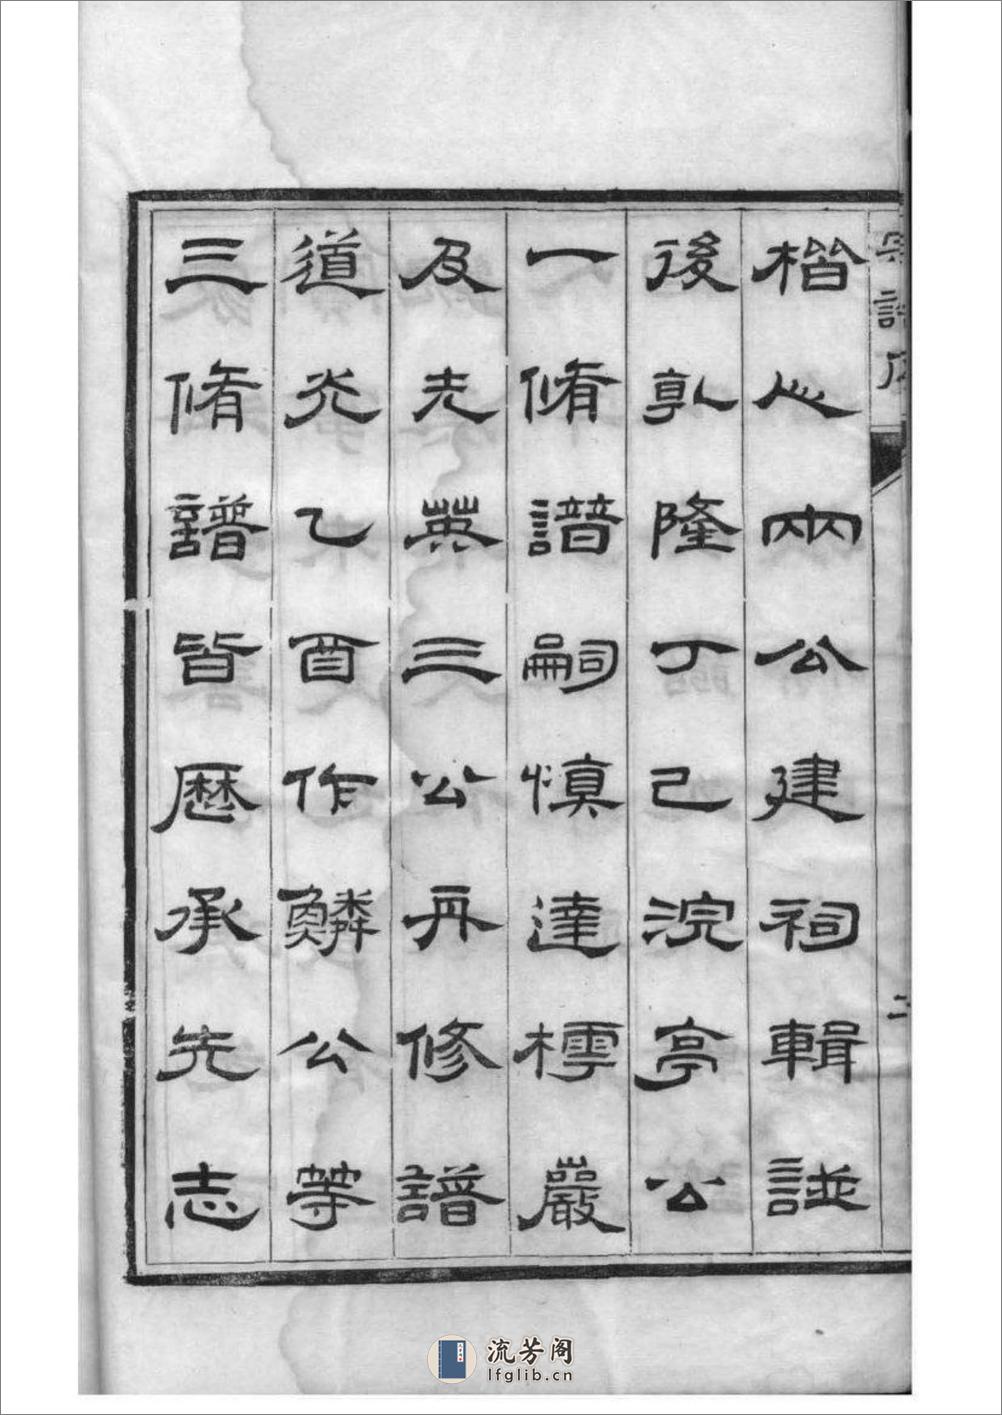 宗譜序
二
楷心兩公建祠輯譜
後乹隆丁己浣亭公
一脩譜嗣慎達樗嚴
及光英三公再修譜
道光乙酉作鱗公等
三脩譜皆歷承先志
流芳阁
lfglib.cn